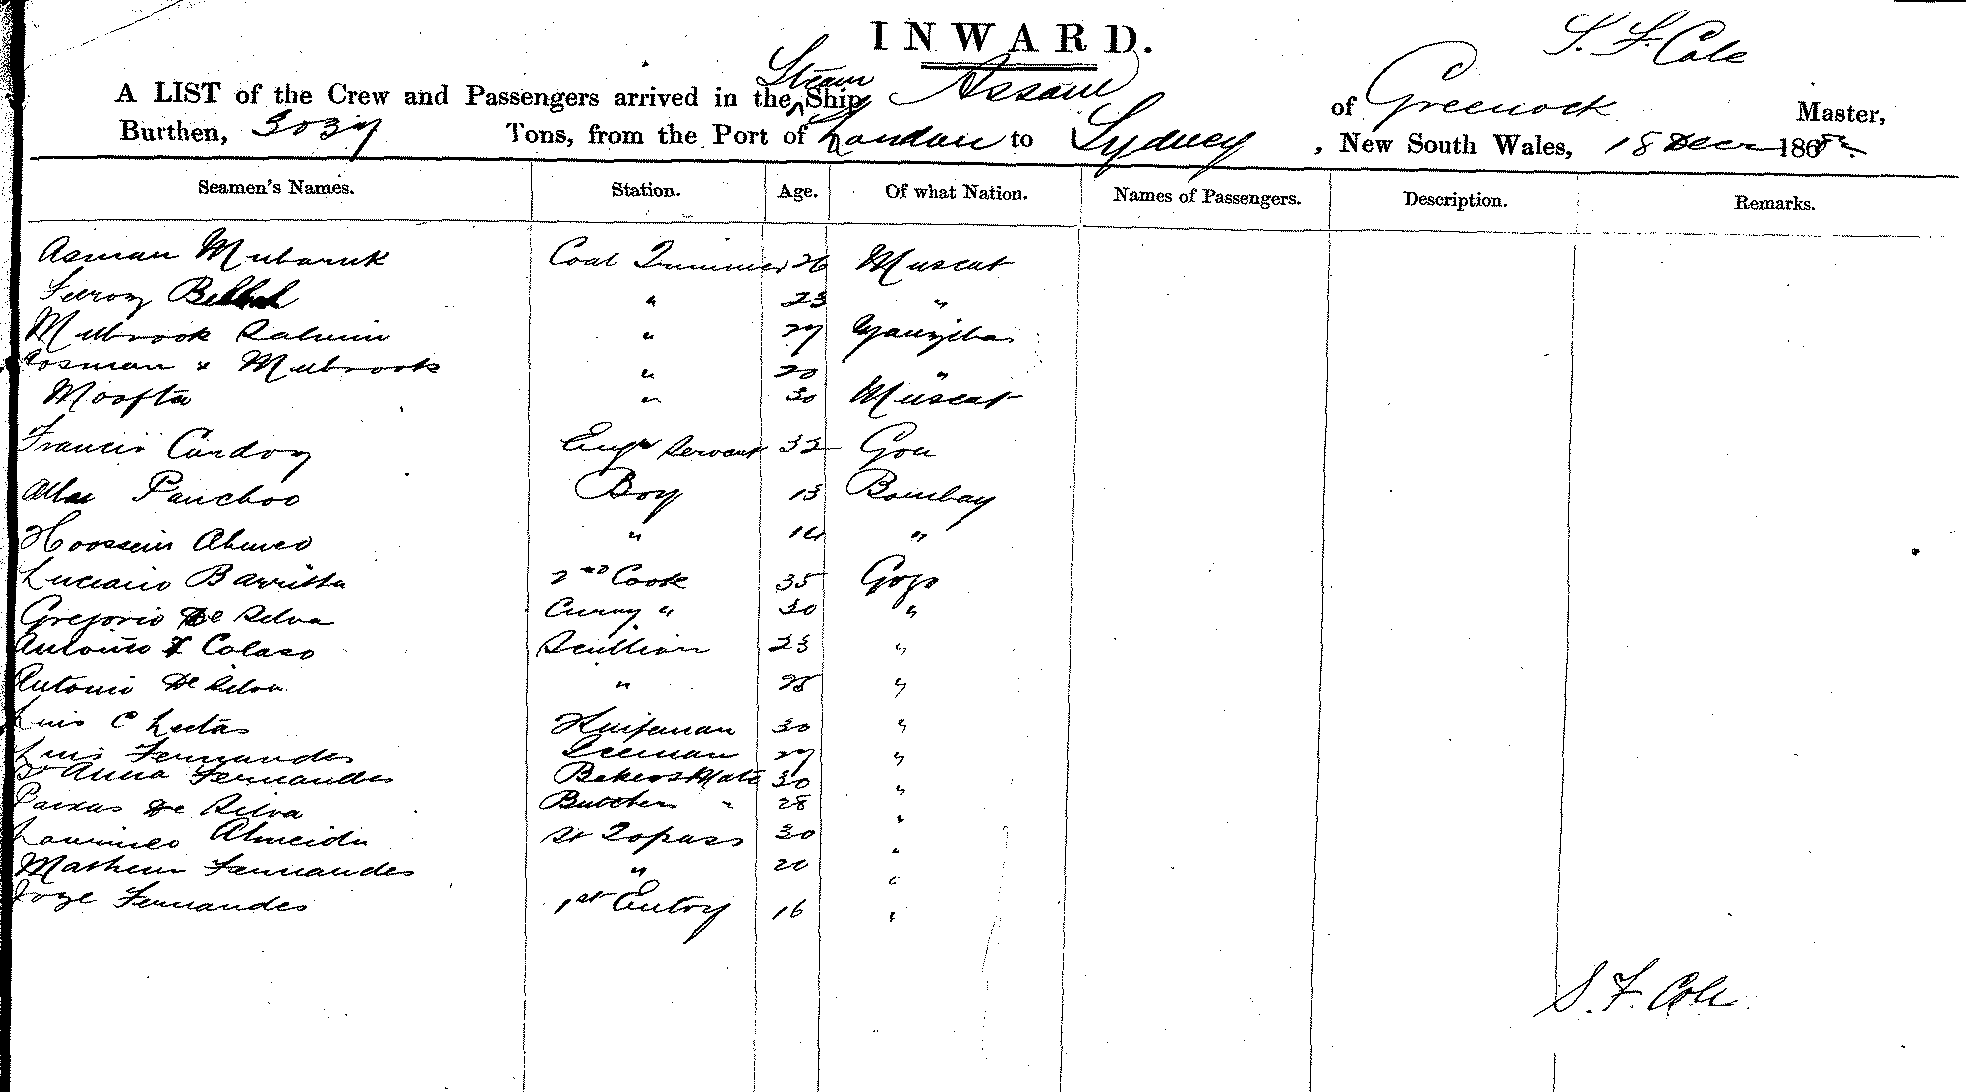 INWARD.
S. F. Cole
A LIST of the Crew and Passengers arrived in the Steam Ship Assam of Greenock Master,
Burthen, 3039 Tons, from the Port of London to Sydney, New South Wales, 18 Decr 188
Seamen's Names. Station. Age. Of what Nation. Names of Passengers. Description. Remarks.
Asman Mubaruk Coal Trimmer 26 Muscat
" 23 "
Mubrook Salmin " 27
Mubrook " 20 "
Moofta " 30 Muscat
Francis Cardoz Engr Servant 32 Goa
Alla Panchoo Boy 13 Bombay
Hoossein Ahmed " 14 "
Luciano Barritta 2nd Cook 35 Goga
Gregorio De Silva Curry " 30 "
Antonio F Colaso Scullion 23 "
Antonio De Silva " 28 "
Luis C 30 "
Luis Fernandes 27 "
Anna Fernandes Bakers Mate 30 "
De Silva Butchers " 28 "
Almeida Topass 30 "
Mathew Fernandes " 20 "
Joze Fernandes 1st Entry 16 "
S. F. Cole